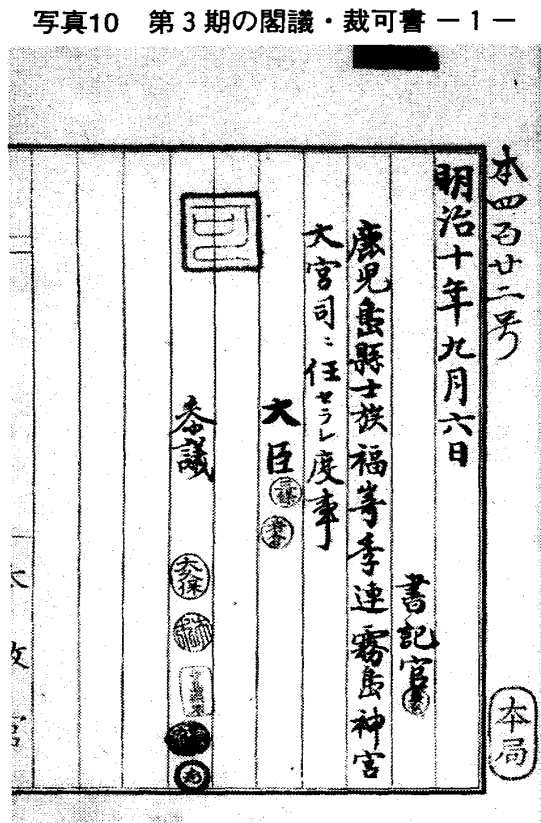 写真10　第3期の閣議・裁可書 ー1ー
本四百廿二号
明治十年九月六日
書記官
鹿児島縣士族福㟢季連霧島神宮
大宮司ニ任セラレ度事
大臣
三條
参議
大久保
本局